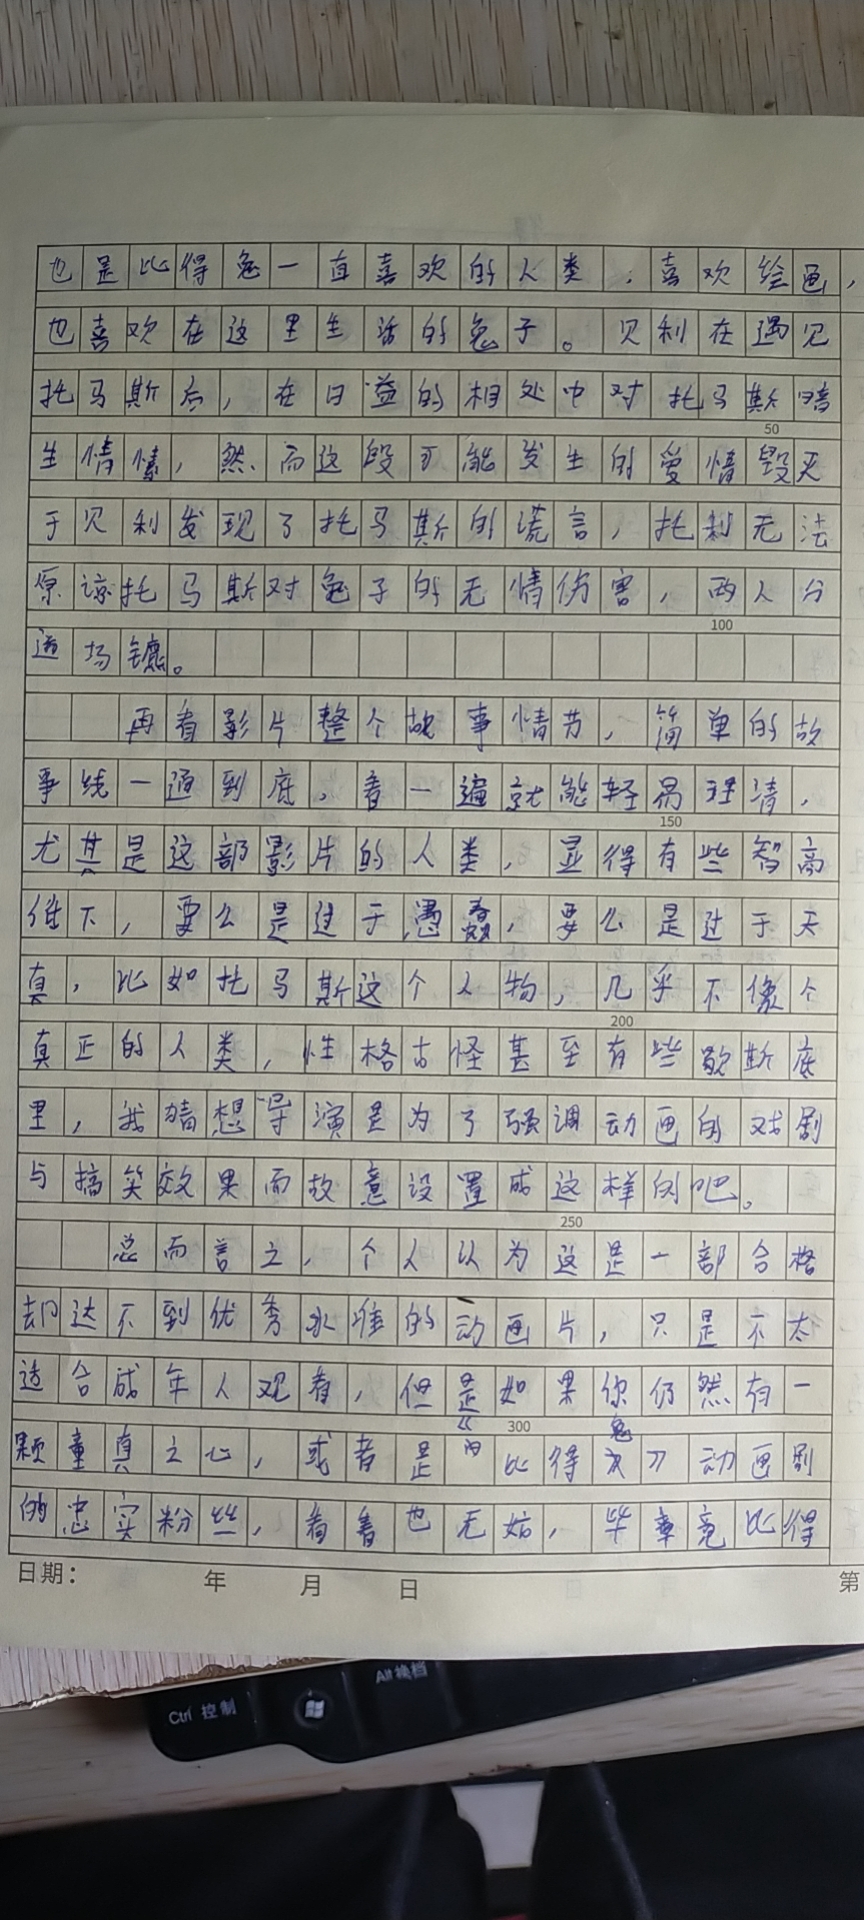 也是比得兔一直喜欢的人类，喜欢绘画，
也喜欢在这里生活的兔子。贝利在遇见
托马斯后，在日益的相处中对托马斯暗
50
生情愫，然而这段可能发生的爱情毁灭
于贝利发现了托马斯的谎言，托利无法
原谅托马斯对兔子的无情伤害，两人分
100
道扬镳。
再看影片整个故事情节，简单的故
事线一通到底，看一遍就能轻易理清，
150
尤其是这部影片的人类，显得有些智商
低下，要么是过于愚蠢，要么是过于天
真，比如托马斯这个人物，几乎不像个
200
真正的人类，性格古怪甚至有些歇斯底
里，我猜想导演是为了强调动画的戏剧
与搞笑效果而故意设置成这样的吧。
250
总而言之，个人认为这是一部合格
却达不到优秀水准的动画片，只是不太
适合成年人观看，但是如果你仍然有一
300
颗童真之心，或者是《比得兔》动画剧
的忠实粉丝，看看也无妨，毕竟比得
日期： 年 月 日 第
Ctrl 控制
Alt 换档